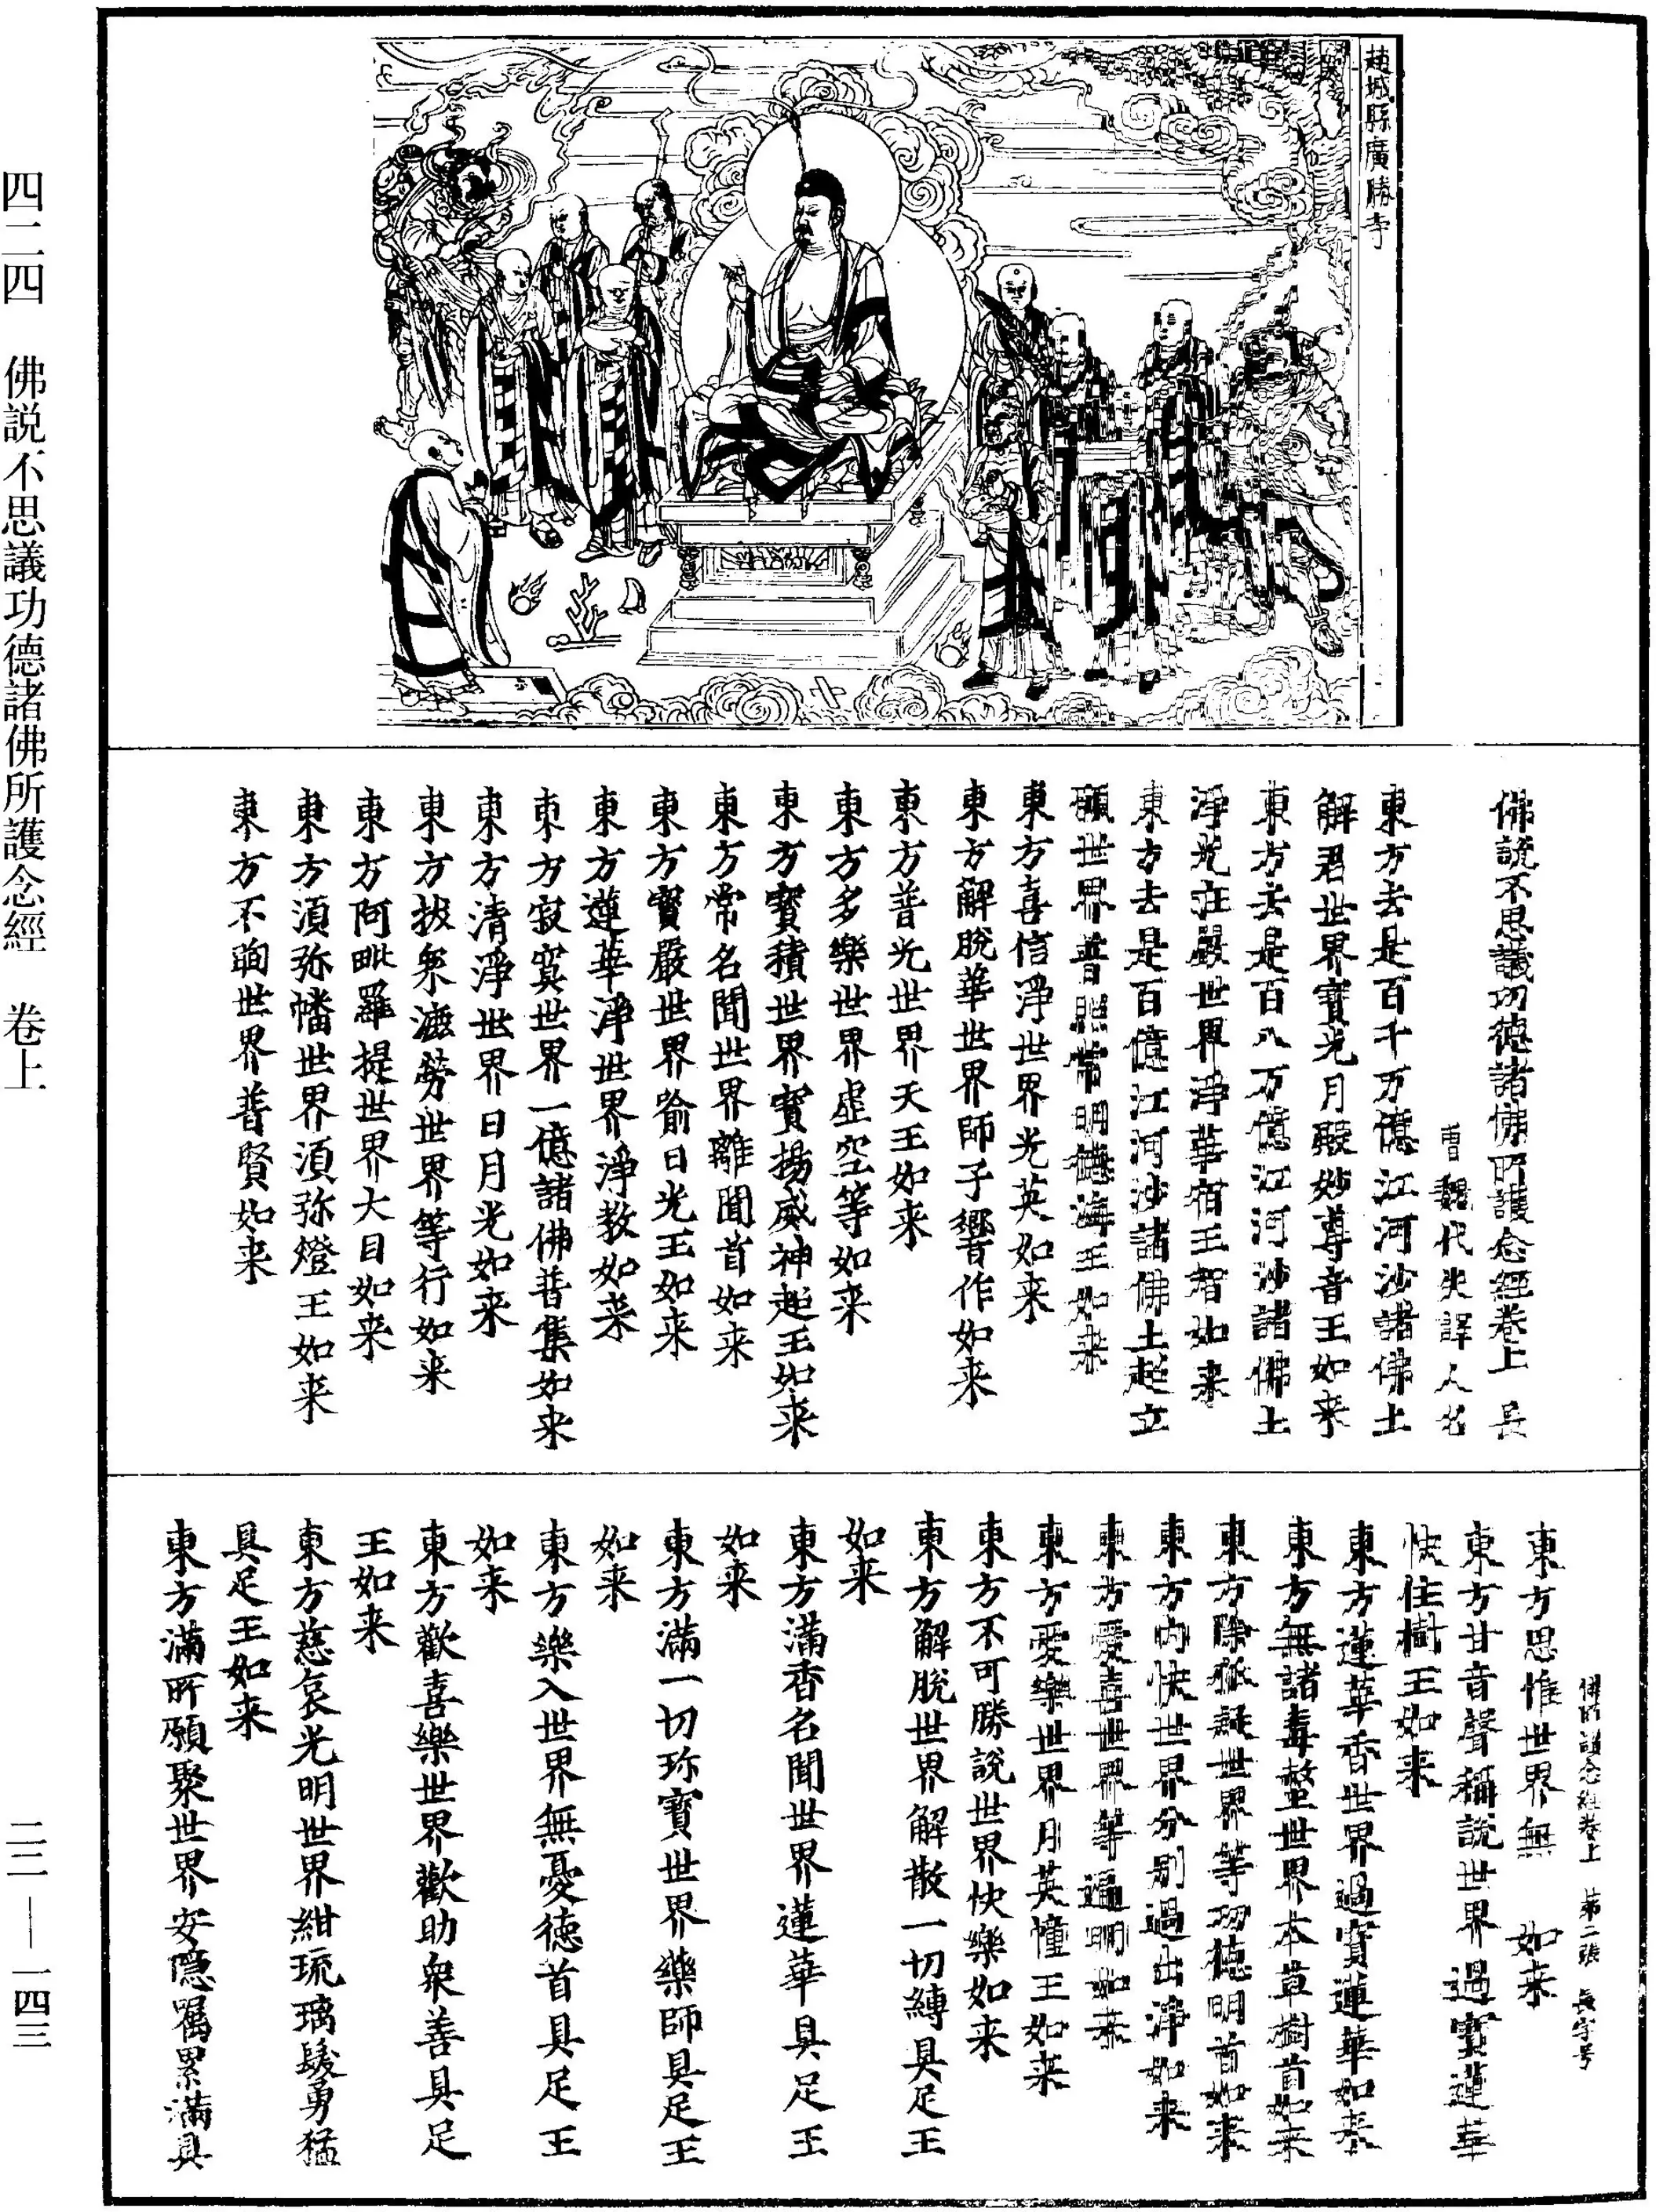 趙城縣廣勝寺
佛說不思議功德諸佛所護念經卷上 長
曹魏代失譯人名
東方去是百千万億江河沙諸佛土
解君世界寶光月殿妙尊音王如来
東方去是百八万億江河沙諸佛土
淨光莊嚴世界淨華宿王智如来
東方去是百億江河沙諸佛土起立
願世界普照常明德海王如来
東方喜信淨世界光英如来
東方解脫華世界師子響作如来
東方普光世界天王如来
東方多樂世界虛空等如来
東方寶積世界寶揚威神超王如来
東方常名聞世界離聞首如来
東方寶嚴世界踰日光王如来
東方蓮華淨世界淨教如来
東方寂寞世界一億諸佛普集如来
東方清淨世界日月光如来
東方拔衆塵勞世界等行如来
東方阿毗羅提世界大目如来
東方須弥幡世界須弥燈王如来
東方不眴世界普賢如来
佛所護念經卷上 第二張 長字号
東方思惟世界無 如来
東方甘音聲稱說世界過寶蓮華
快住樹王如来
東方蓮華香世界過寶蓮華如来
東方無諸毒螫世界本草樹首如来
東方除狐疑世界等功德明首如来
東方內快世界分別過出淨如来
東方愛喜世界等遍明如来
東方愛樂世界月英幢王如来
東方不可勝說世界快樂如来
東方解脫世界解散一切縛具足王
如来
東方滿香名聞世界蓮華具足王
如来
東方滿一切珎寶世界藥師具足王
如来
東方樂入世界無憂德首具足王
如来
東方歡喜樂世界歡助衆善具足
王如来
東方慈哀光明世界紺琉璃髮勇猛
具足王如来
東方滿所願聚世界安隱囑累滿具
四二四 佛説不思議功德諸佛所護念經 卷上
二二——一四三